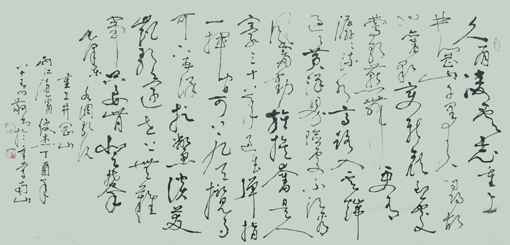 久有凌云志重上
井冈山千里来寻故
地旧貌变新颜到处
莺歌燕舞更有
潺潺流水高路入云端
过了黄洋界险处不须看
风雷动旌旗奋是人
寰三十八年过去弹指
一挥间可上九天揽月
可下五洋捉鳖谈笑
凯歌还世上无难
事只要肯登攀
毛泽东水调歌头
重上井冈山
两江 丁酉年
八十